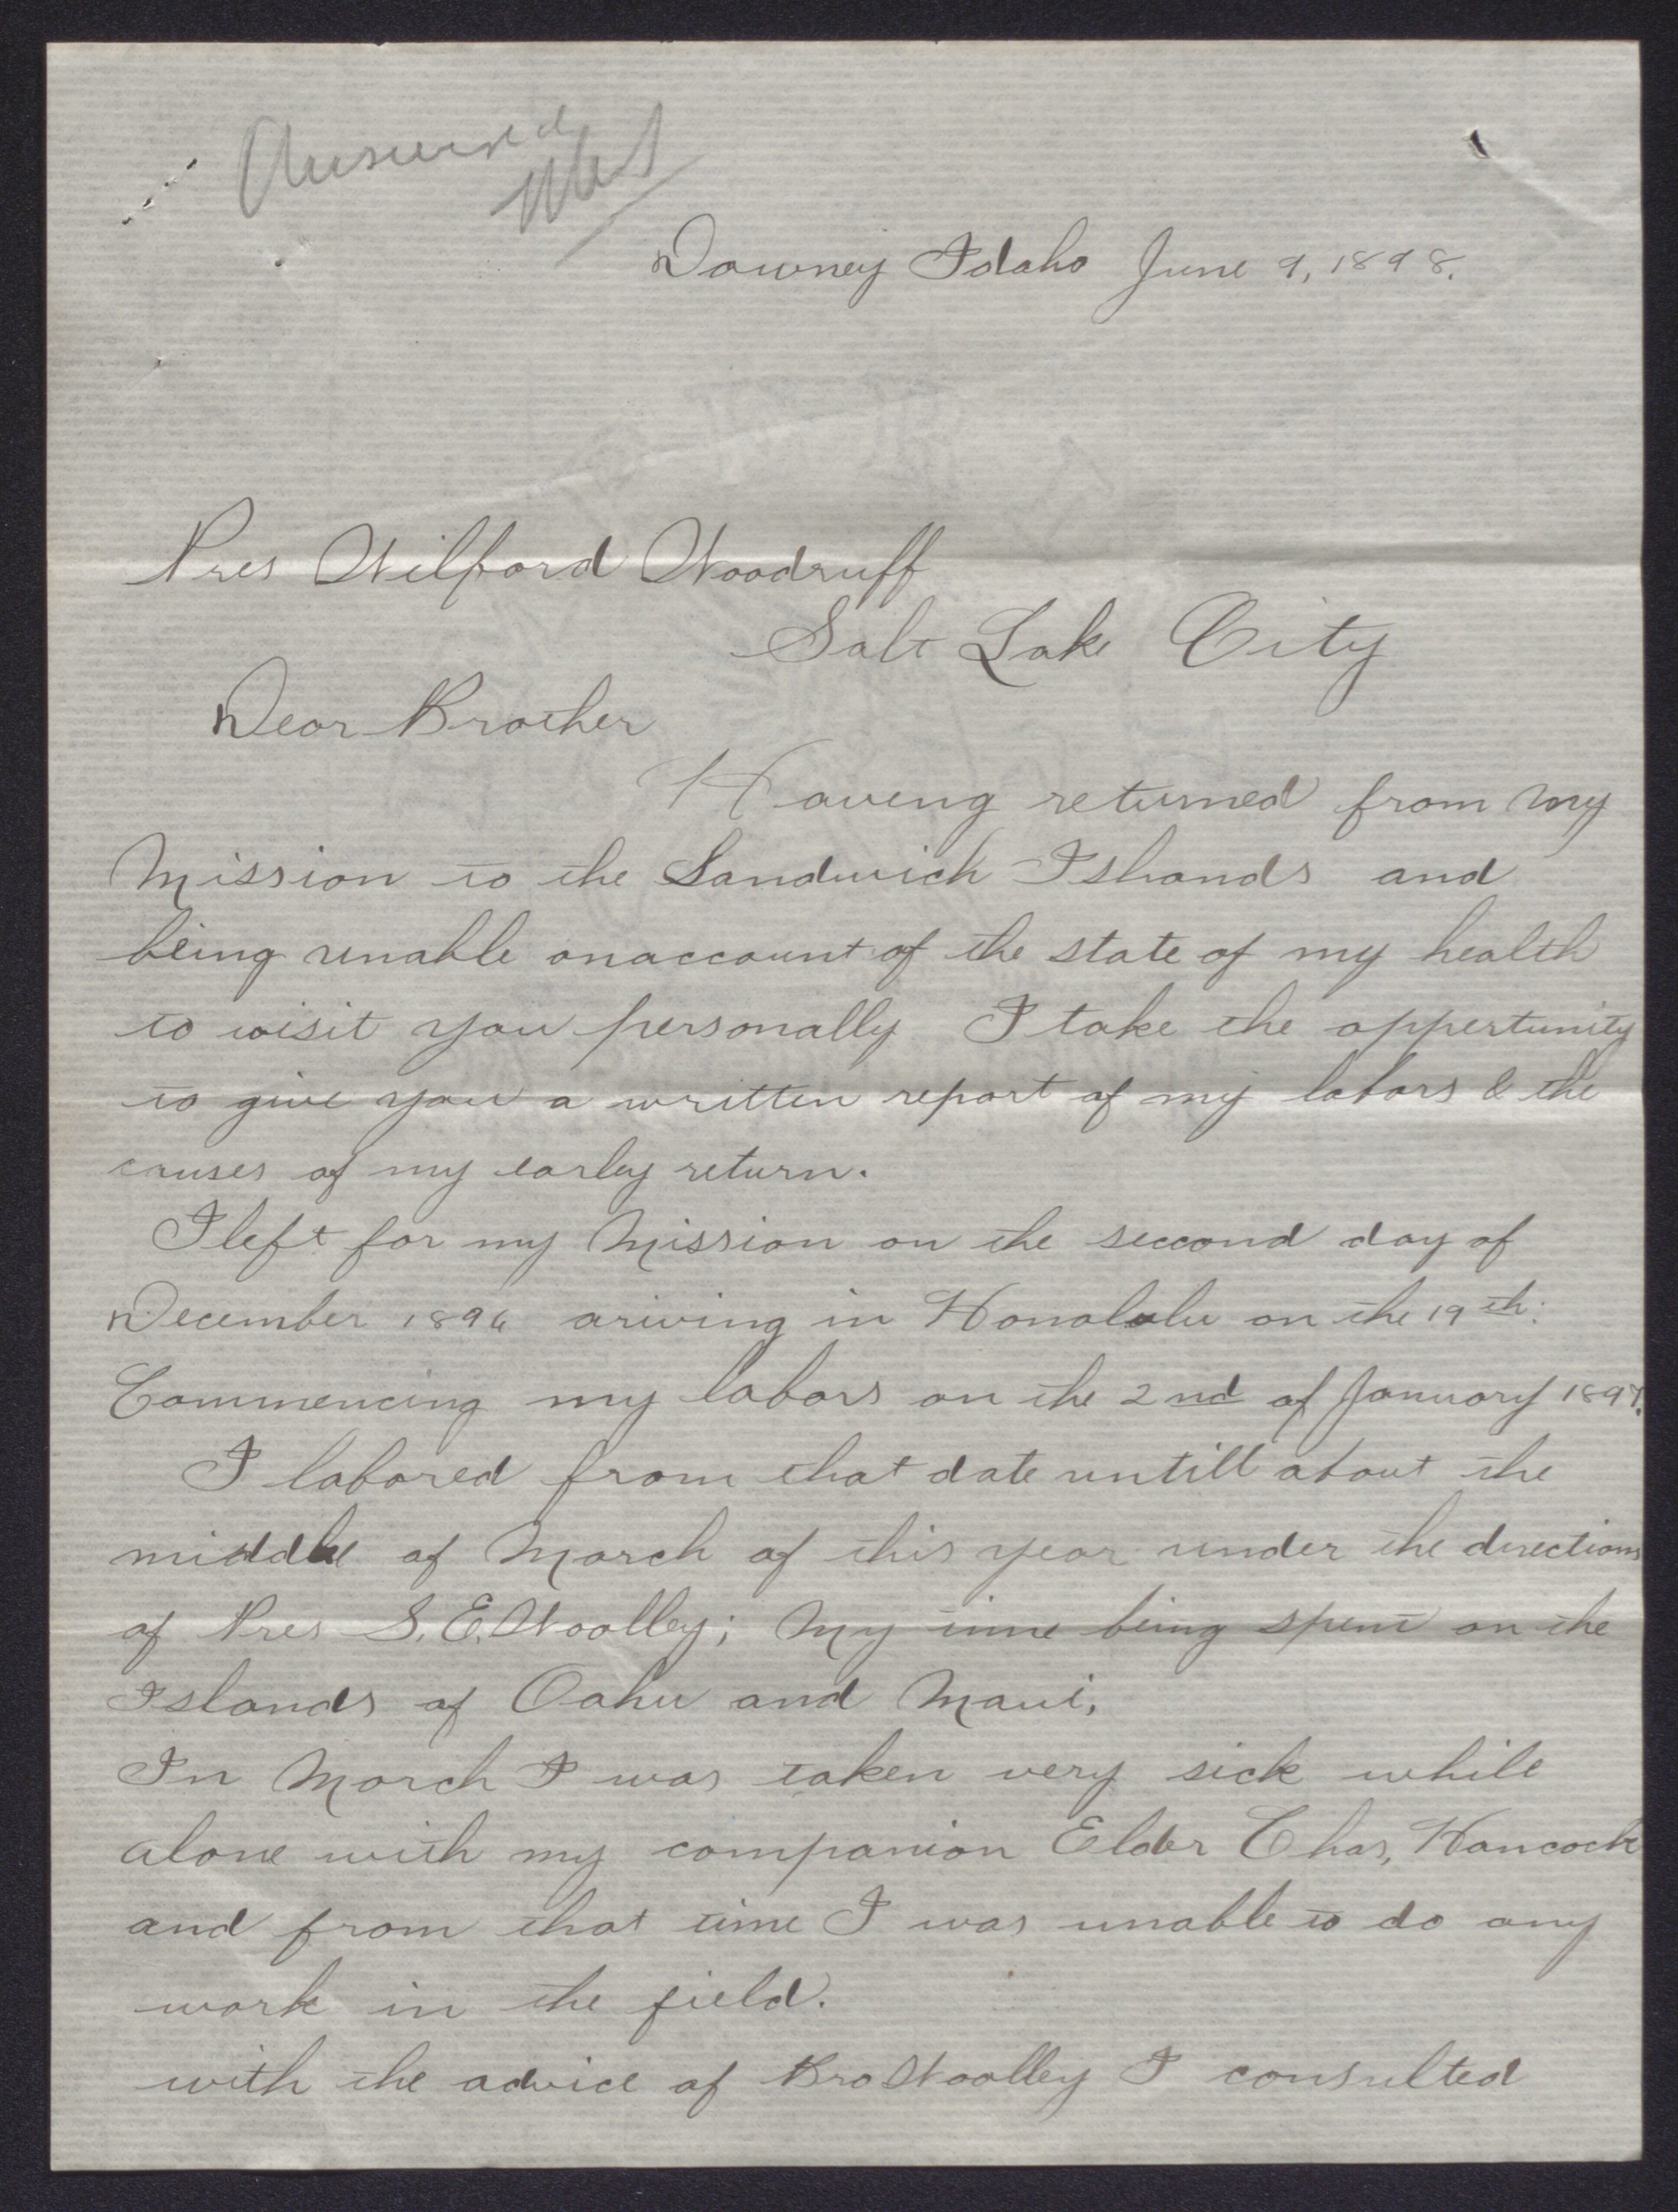 Answered
Downey Idaho June 9, 1898.
Pres Wilford Woodruff
Salt Lake City
Dear Brother
Haveng returned from my
Mission to the Sandwich Islands and
being unable onaccount of the state of my health
to visit you personally I take the oppertunity
to give you a written report of my labors & the
causes of my earley return.
I left for my Mission on the seccond day of
December 1896 ariving in Honolulu on the 19th.
Commencing my labors on the 2nd of January 1897.
I labored from that date untill about the
middle of March of this year under the directions
of Pres S. E. Woolley; My time being spent on the
Islands of Oahu and Maui,
In March I was taken very sick while
alone with my companion Elder Chas, Hancock
and from that time I was unable to do any
work in the field.
with the advice of Bro Woolley I consulted